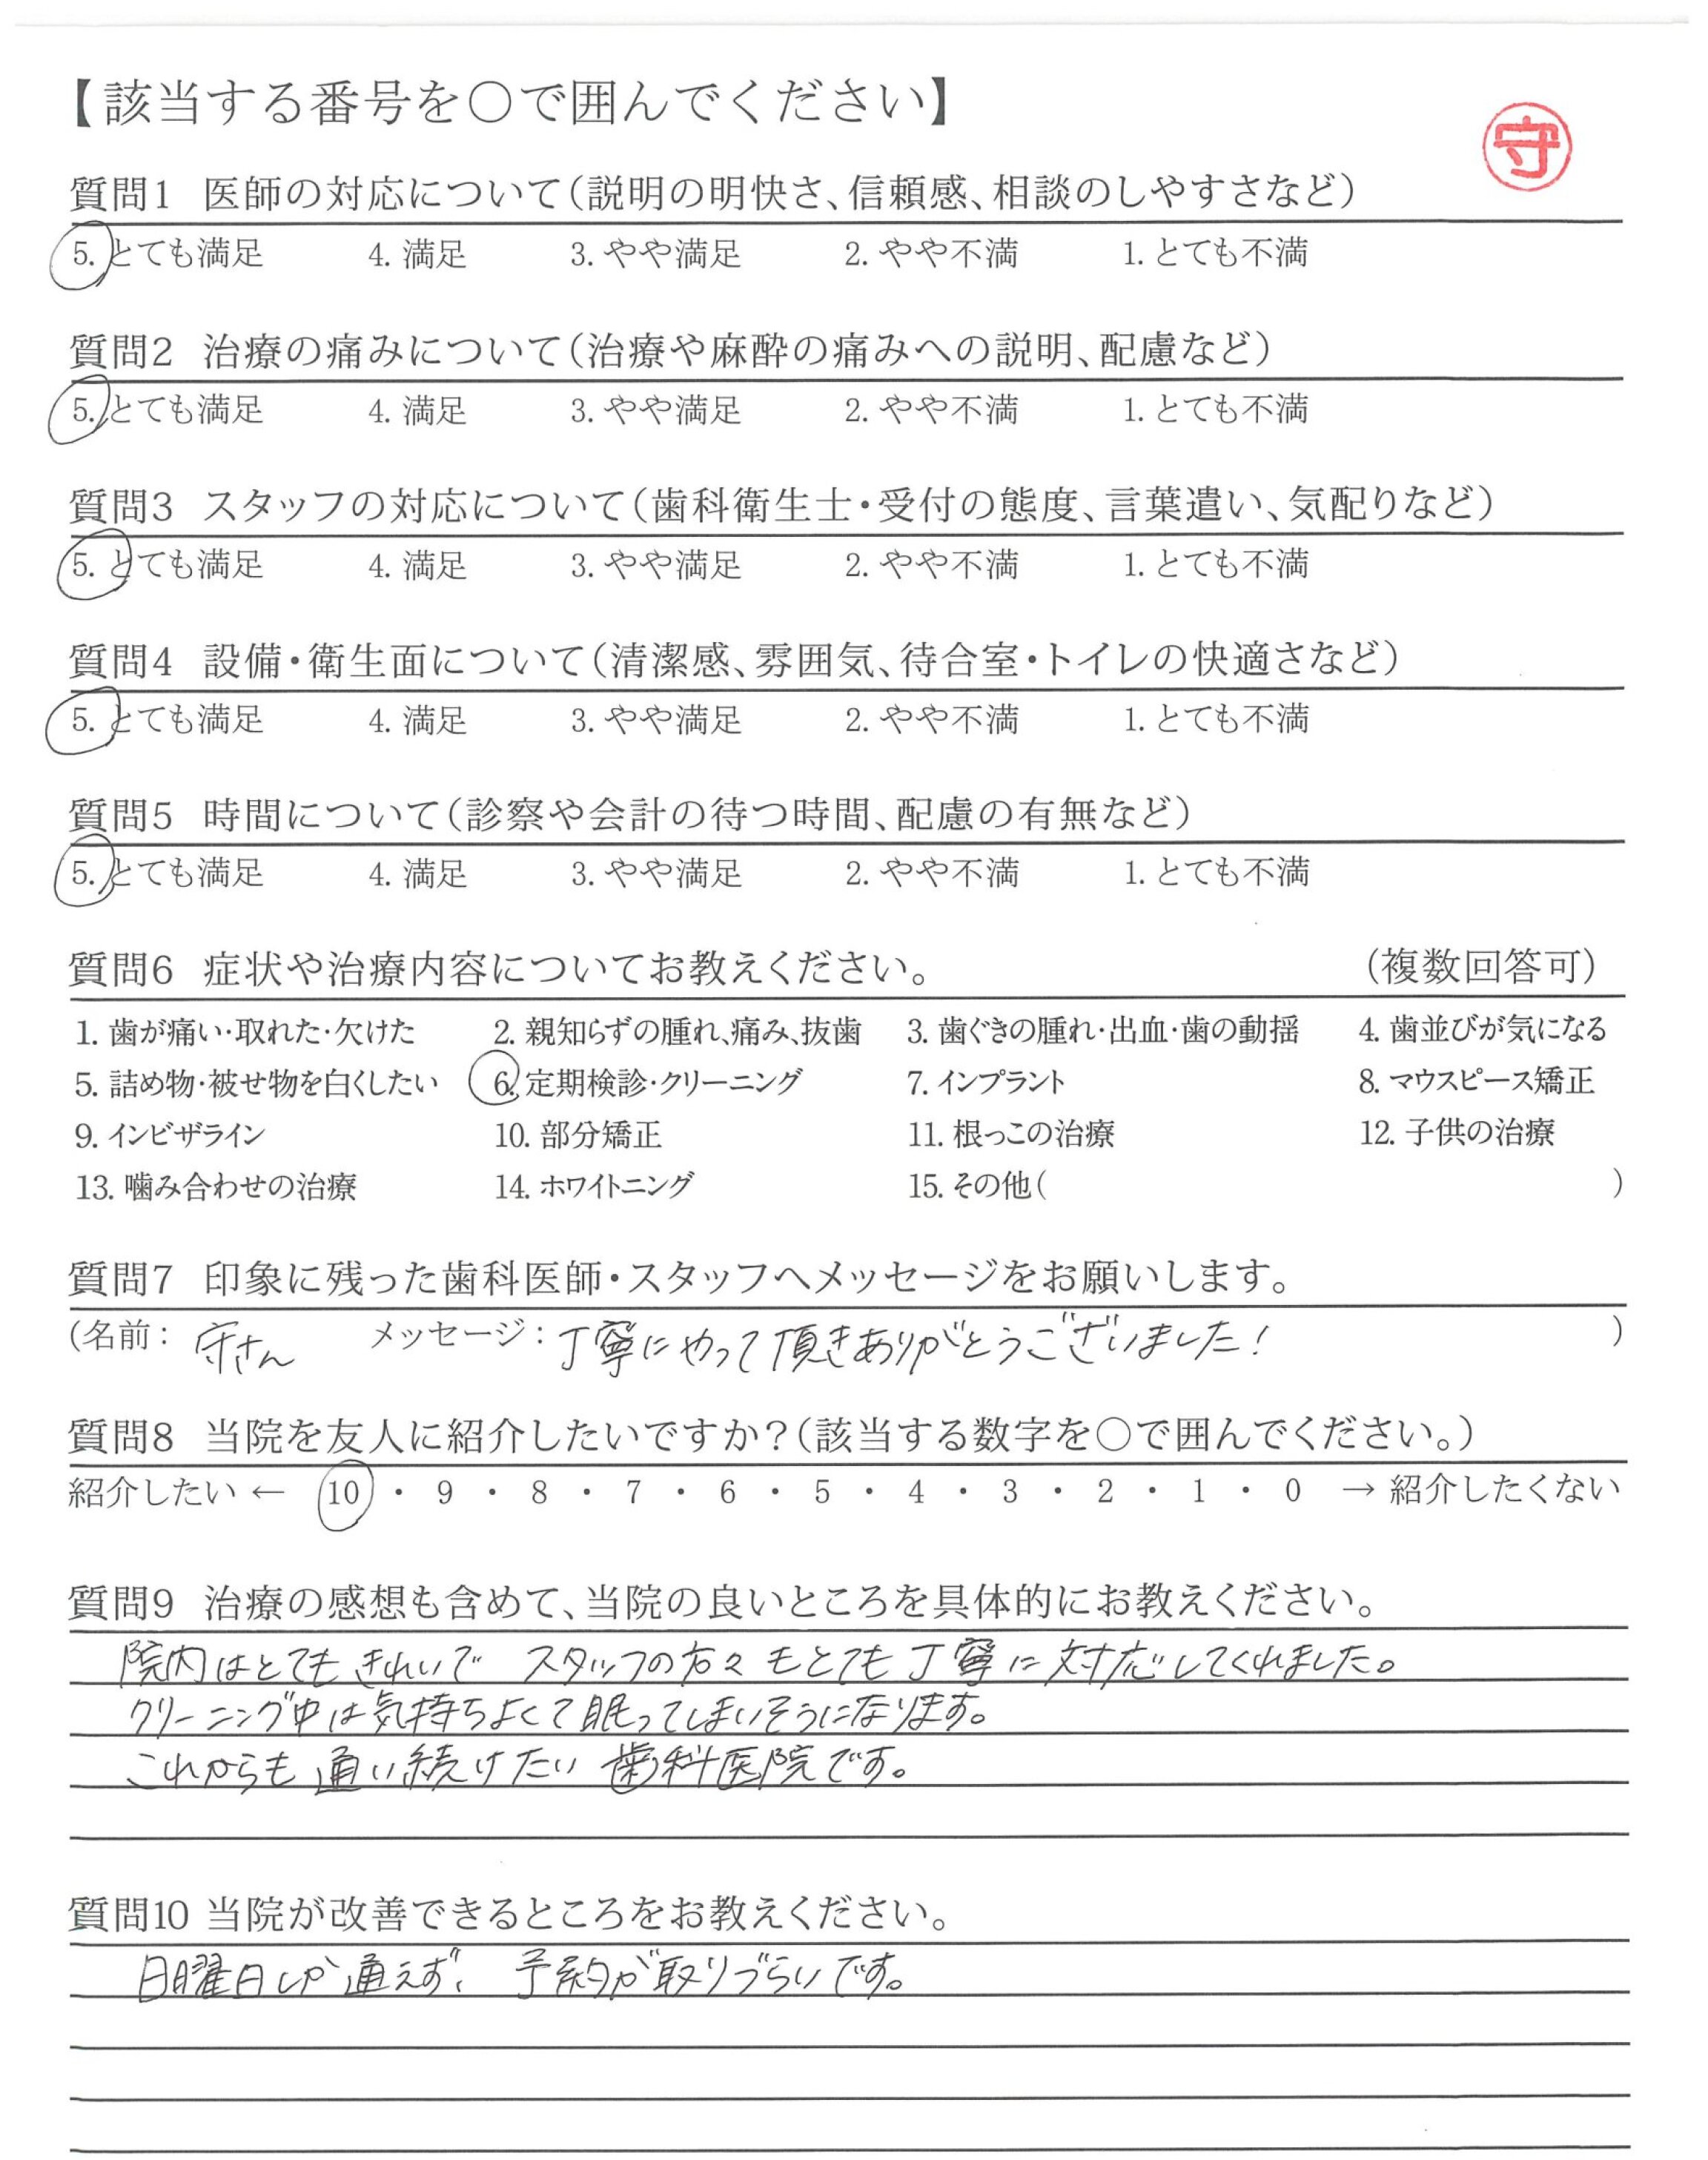 【該当する番号を○で囲んでください】
守
質問1 医師の対応について(説明の明快さ、信頼感、相談のしやすさなど)
5. とても満足 4. 満足 3. やや満足 2. やや不満 1. とても不満
質問2 治療の痛みについて(治療や麻酔の痛みへの説明、配慮など)
5. とても満足 4. 満足 3. やや満足 2. やや不満 1. とても不満
質問3 スタッフの対応について(歯科衛生士・受付の態度、言葉遣い、気配りなど)
5. とても満足 4. 満足 3. やや満足 2. やや不満 1. とても不満
質問4 設備・衛生面について(清潔感、雰囲気、待合室・トイレの快適さなど)
5. とても満足 4. 満足 3. やや満足 2. やや不満 1. とても不満
質問5 時間について(診察や会計の待つ時間、配慮の有無など)
5. とても満足 4. 満足 3. やや満足 2. やや不満 1. とても不満
質問6 症状や治療内容についてお教えください。 (複数回答可)
1. 歯が痛い・取れた・欠けた 2. 親知らずの腫れ、痛み、抜歯 3. 歯ぐきの腫れ・出血・歯の動揺 4. 歯並びが気になる
5. 詰め物・被せ物を白くしたい 6. 定期検診・クリーニング 7. インプラント 8. マウスピース矯正
9. インビザライン 10. 部分矯正 11. 根っこの治療 12. 子供の治療
13. 噛み合わせの治療 14. ホワイトニング 15. その他( )
質問7 印象に残った歯科医師・スタッフへメッセージをお願いします。
(名前: 守さん メッセージ: 丁寧にやって頂きありがとうございました! )
質問8 当院を友人に紹介したいですか?(該当する数字を○で囲んでください。)
紹介したい ← 10 ・ 9 ・ 8 ・ 7 ・ 6 ・ 5 ・ 4 ・ 3 ・ 2 ・ 1 ・ 0 → 紹介したくない
質問9 治療の感想も含めて、当院の良いところを具体的にお教えください。
院内はとてもきれいで スタッフの方々もとても丁寧に対応してくれました。
クリーニング中は気持ちよくて眠ってしまいそうになります。
これからも通い続けたい歯科医院です。
質問10 当院が改善できるところをお教えください。
日曜日しか通えず、予約が取りづらいです。